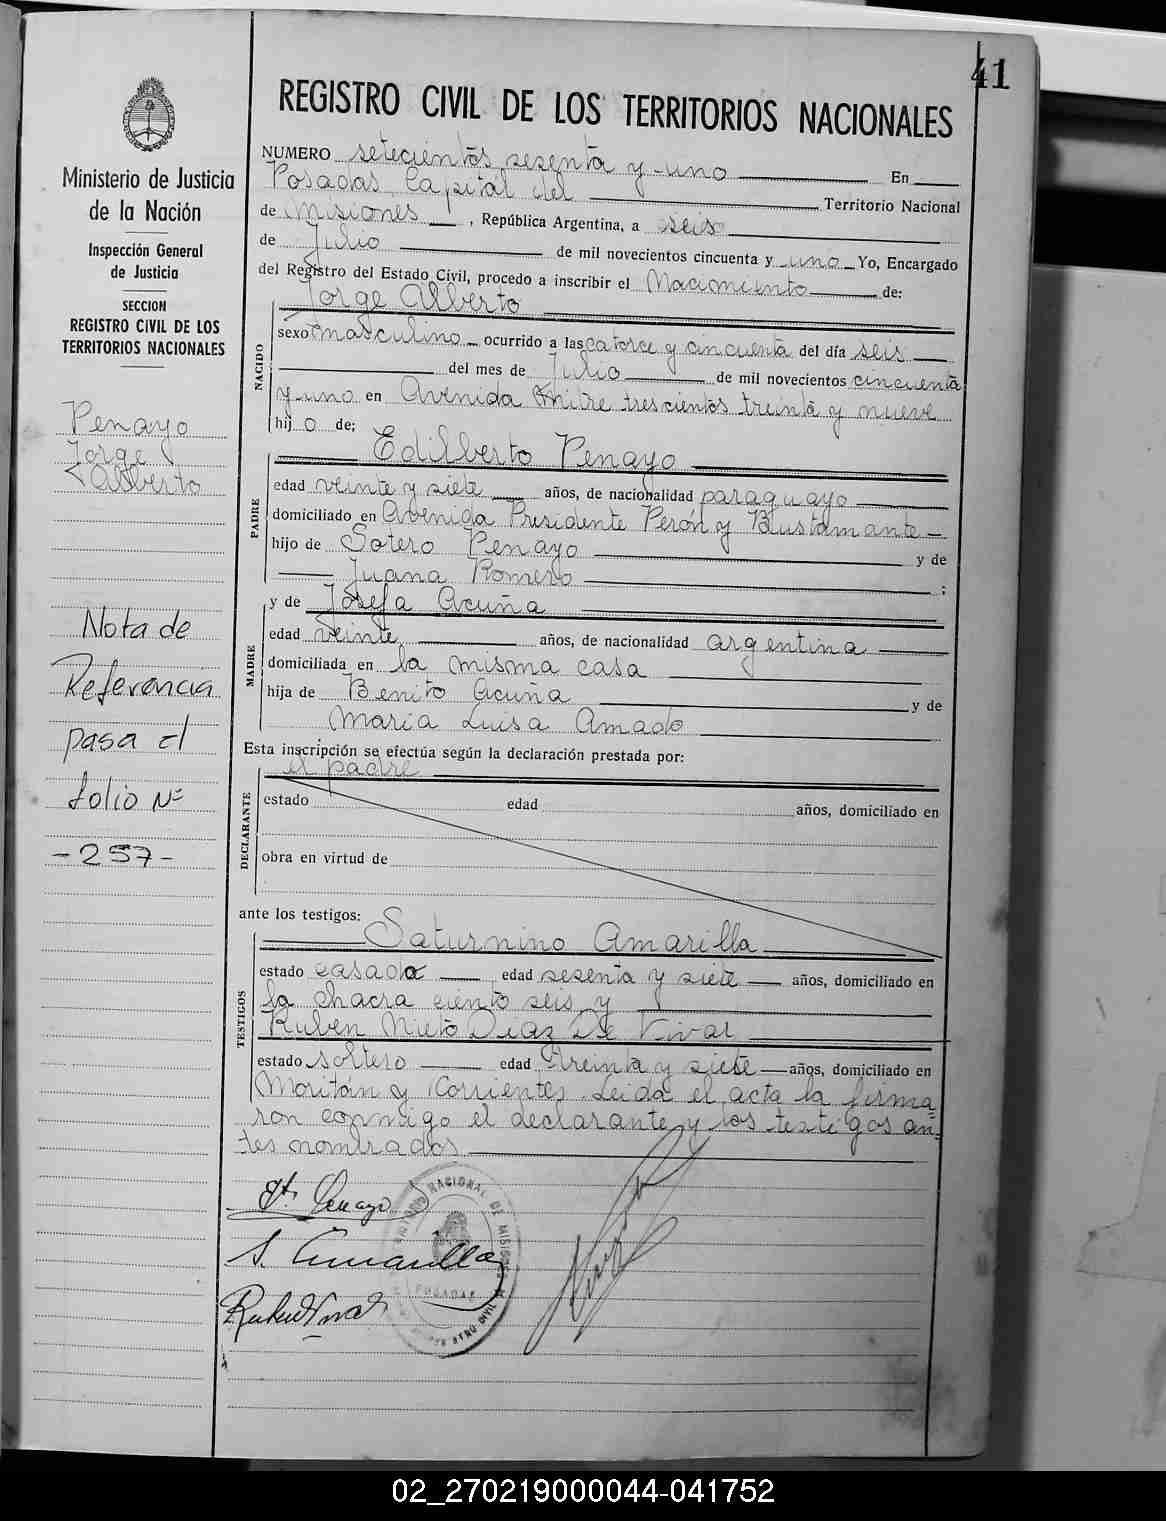 41
REGISTRO CIVIL DE LOS TERRITORIOS NACIONALES
Ministerio de Justicia
de la Nación
Inspección General
de Justicia
SECCION
REGISTRO CIVIL DE LOS
TERRITORIOS NACIONALES
Penayo
Jorge
Alberto
Nota de
Referencia
pasa al
folio Nº
-257-
NUMERO setecientos sesenta y uno En
Posadas Capital del Territorio Nacional
de Misiones, República Argentina, a seis
de Julio de mil novecientos cincuenta y uno Yo, Encargado
del Registro del Estado Civil, procedo a inscribir el Nacimiento de:
Jorge Alberto
NACIDO
sexo masculino ocurrido a las catorce y cincuenta del día seis
del mes de Julio de mil novecientos cincuenta
y uno en Avenida Mitre trescientos treinta y nueve
hij o de:
Edilberto Penayo
PADRE
edad veinte y siete años, de nacionalidad paraguayo
domiciliado en Avenida Presidente Perón y Bustamante
hijo de Sotero Penayo y de
Juana Romero ;
y de Josefa Acuña
MADRE
edad veinte años, de nacionalidad argentina
domiciliada en la misma casa
hija de Benito Acuña y de
María Luisa Amado
Esta inscripción se efectúa según la declaración prestada por:
el padre
DECLARANTE
estado edad años, domiciliado en
obra en virtud de
ante los testigos:
Saturnino Amarilla
TESTIGOS
estado casado edad sesenta y siete años, domiciliado en
la chacra ciento seis y
Ruben Nieto Diaz De Vivar
estado soltero edad treinta y siete años, domiciliado en
y Corrientes. Leida el acta la firma=
ron conmigo el declarante y los testigos an=
tes nombrados
Penayo
S. Amarilla
NACIONAL DE MISIONES
POSADAS
CIVIL
02_270219000044-041752